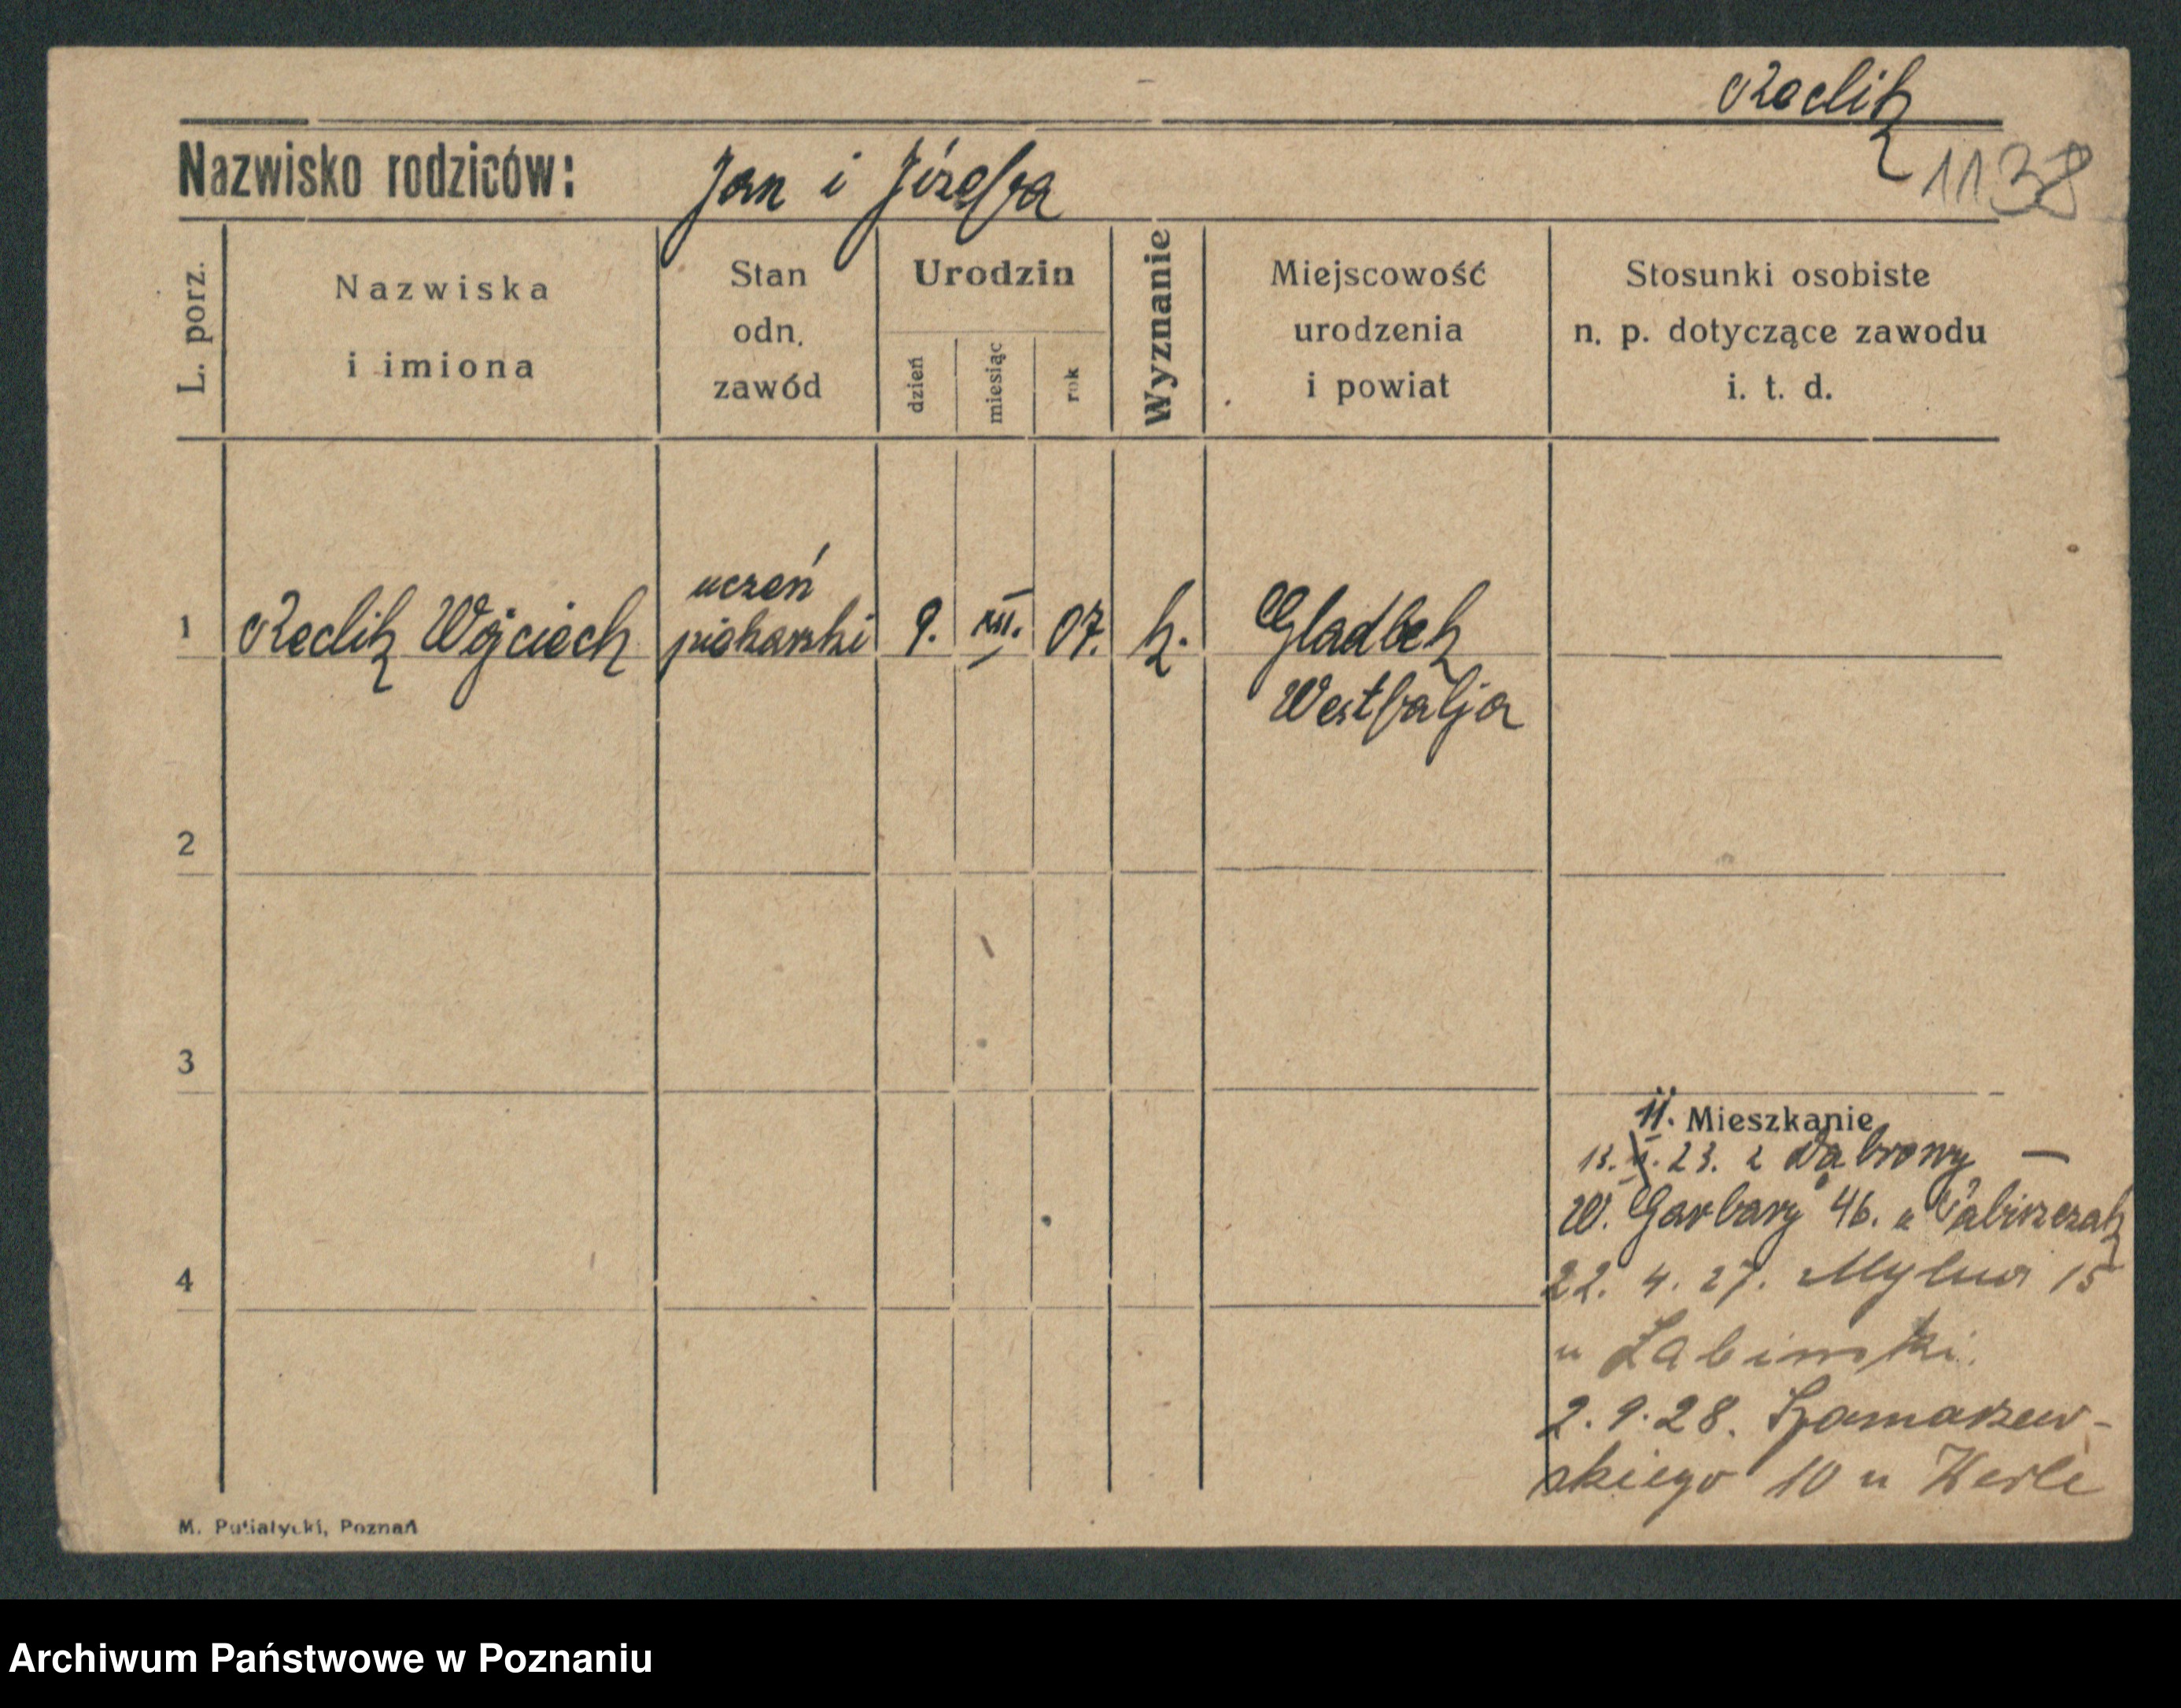 Reclik
1138
Nazwisko rodziców: Jan i Józefa
L. porz.
Nazwiska
i imiona
Stan
odn.
zawód
Urodzin
dzień
miesiąc
rok
Wyznanie
Miejscowość
urodzenia
i powiat
Stosunki osobiste
n. p. dotyczące zawodu
i. t. d.
uczeń
1 Reclik Wojciech piekarski 9. III. 07. k. Gladbek
Westfalja
2
3
4
II. Mieszkanie
13. 23. z Dąbrowy —
W. Garbary 46. u
22. 4. 27. Mylna 15
u Łabiński.
2. 9. 28. Szamarzew-
skiego 10 u Werle
M. Putiatycki, Poznań
Archiwum Państwowe w Poznaniu